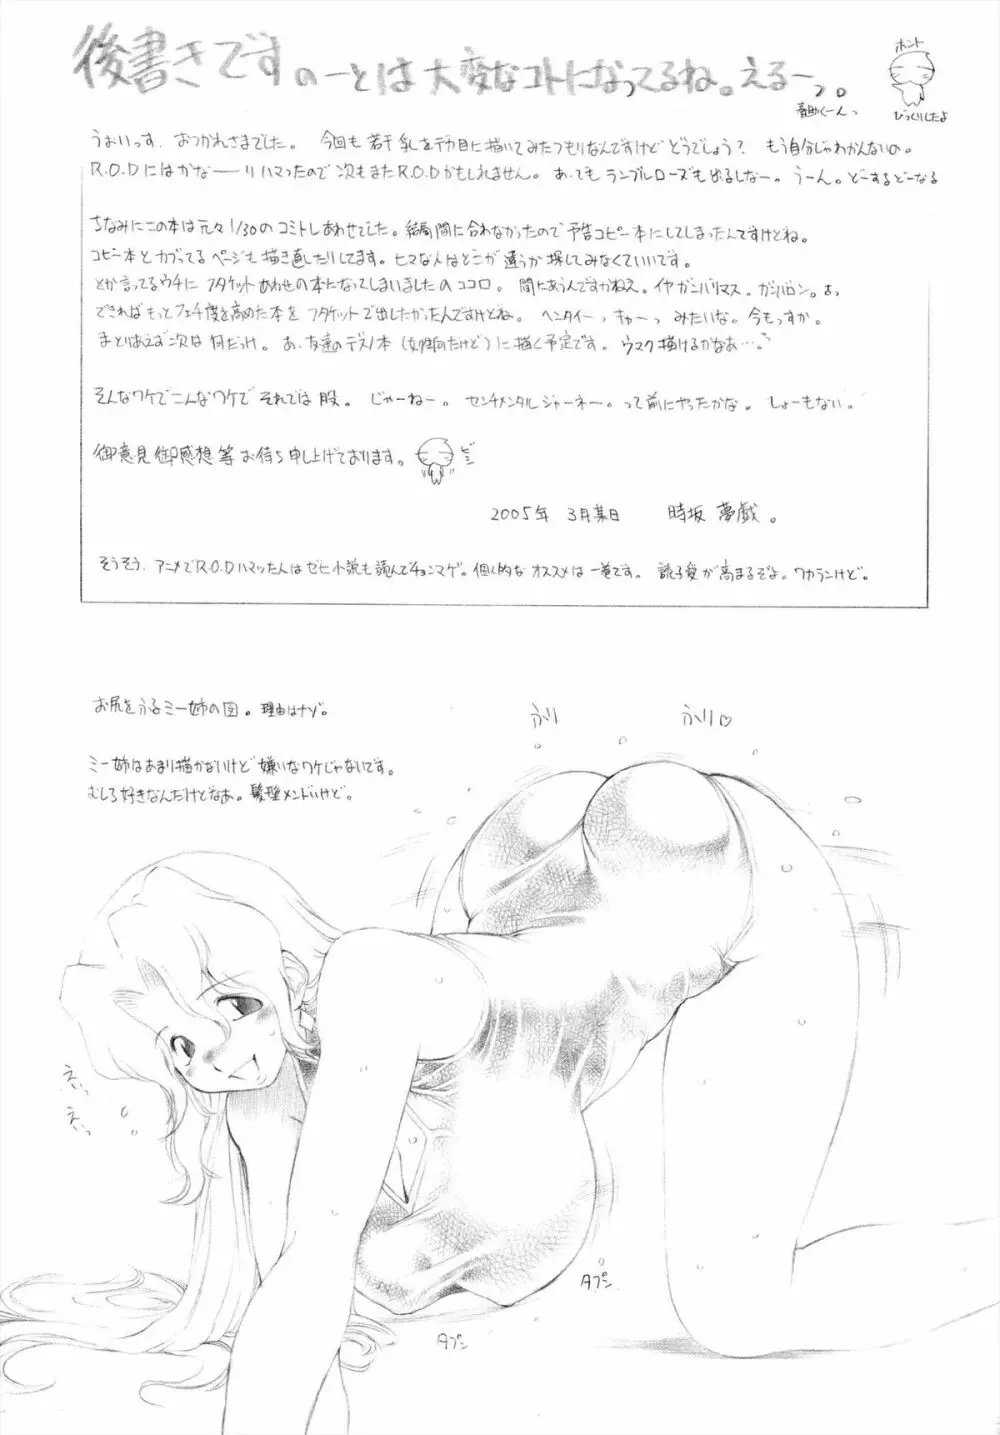 後書きです のーとは大変なコトになってるね。えるーっ。
ホント
びっくりしたよ
うぉいっす、おつかれさまでした。 今回も若干乳をデカ目に描いてみたつもりなんですけどどうでしょう? もう自分じゃわかんないの。
R.O.Dにはかなーーりハマったので次もまたR.O.Dかもしれません。あ、でもランブルローズも出るしなー。うーん。どーするどーなる
ちなみにこの本は元々1/30のコミトレあわせでした。結局間に合わなかったので予告コピー本にしてしまったんですけどね。
コピー本とカブってるページも描き直したりしてます。ヒマな人はどこが違うか探してみなくていいです。
とか言ってるウチにフタケットあわせの本になってしまいましたのココロ。間にあうんですかねえ。イヤガンバリマス。ガンバロン。あっ
できればもっとフェチ度を高めた本をフタケットで出したかったんですけどね。ヘンタイーっきゃーっみたいな。今もっすか。
まとりあえず次は何だっけ。あ、友達のデスノ本(女性向だけど)に描く予定です。ウマク描けるかなあ…。
そんなワケでこんなワケでそれでは股。じゃーねー。センチメンタルジャーネー。って前にやったかな。しょーもない。
御意見御感想等お待ち申し上げております。
2005年 3月某日 時坂夢戯。
そうそう、アニメでR.O.Dハマッた人はゼヒ小説も読んでチョンマゲ。個人的なオススメは一巻です。読子愛が高まるぞよ。ワカランけど。
お尻をふるミー姉の図。理由はナゾ。
ふり
ふり♡
ミー姉はあまり描かないけど嫌いなワケじゃないです。
むしろ好きなんだけどなあ。髪型メンドいけど。
えっ
えっ
タプン
タプン